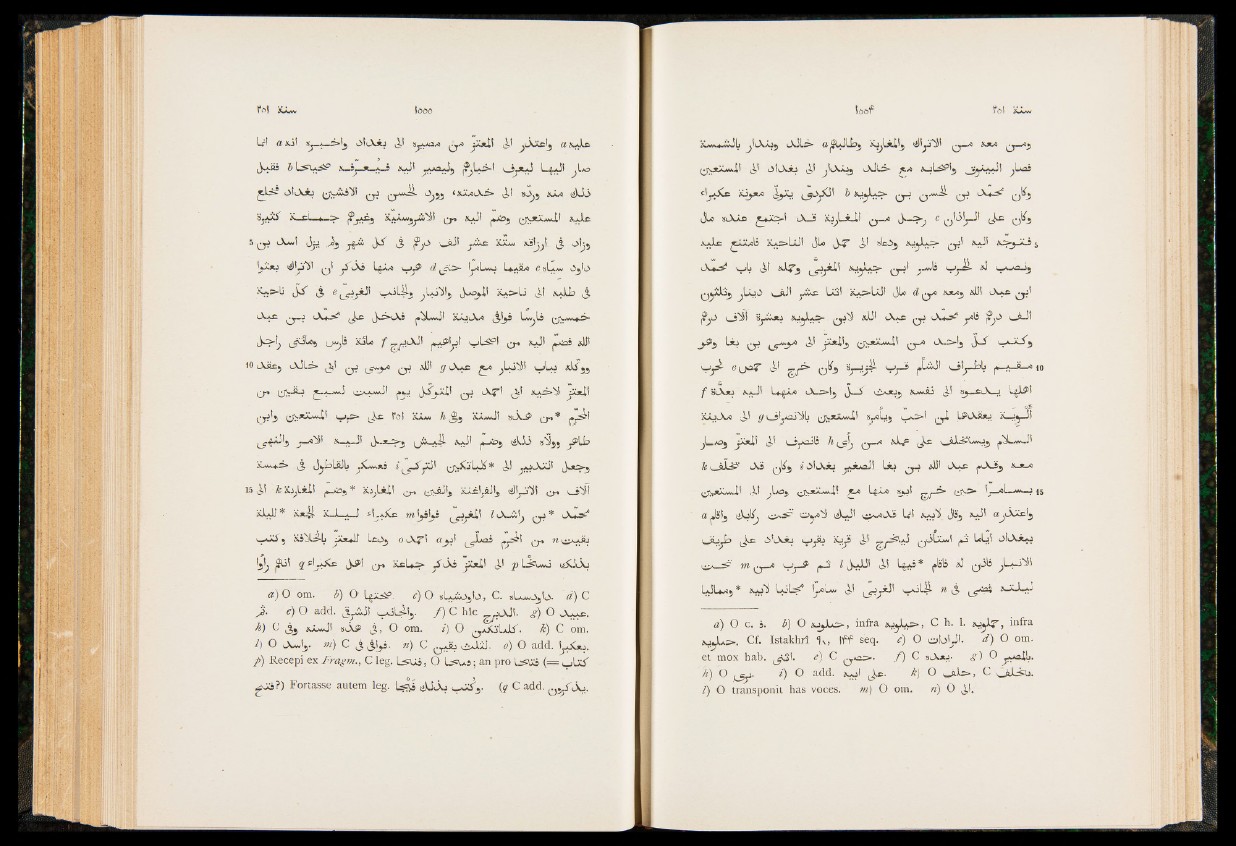 سنة ٢٥١ ١٥٥٤
فصار البينوق واصحابه مع خالد وبندار الى بغداد الى المستعين
وكان محمد بن الحسن بن جيلويه b الكردى يتولى معونة عكبراء
وكان على الراذان c رجل من المغاربة قد اجتمع عنده مال
5 فتوجه اليه ابن جيلويه ودعاه الى حمل مال الناحية فامتنع عليه
ونصب له الحرب فاسر ابن جيلويه المغربى وحمله الى باب محمد
ابن عبد الله ومعه من d مال الناحية اثنا عشر الف دينار وثلثون
الف درهم فامر محمد بن عبد الله لابن جيلويه بعشرة آلاف درهم
وكتب كل واحد من المستعين والمعتز الى موسى بن بغا وهو
10 مقيم باطراف الشأم قرب الجزيرة وكان خرج الى حمص e لحرب
اهلها يدعوه الى نفسه وبعث كل واحد منهما اليه بعدة f
ألوية يعقدها لمن احب ويأمره المستعين بالانصراف g الى مدينة
السلام ويستخلف على عمله من رأى h فانصرف الى المعتز وصار
معه وقدم عبد الله بن بغا الصغير بغداد i وكان قد تخلف k
15 بسامرا حين خرج ابوه منها مع المستعين فصار الى المستعين
واعتذر a اليه وقال لابيه انما قدمت اليك لاموت تحت ركابك واقام a
ببغداد اياما ثم استأذن ليخرج الى قرية بقرب بغداد على طريق
الانبار فأذن له فاقام *فيها الى الليل l ثم هرب من m تحت
ليلته فمضى فى n الجانب الغربى الى سامرا مجانبا لابيه *وممالئا
a) O c. و. b) O حىلويه, infra جيلويه, C h. l. , infra
. Cf. Istakhrī ٩٨, ١١٣ seq. c) O الراداب. d) O om.
et mox hab. اثنى. e) C حصن. f) C بعده. g) O بالمصير.
h) O يرى. i) O add. على ابيه. k) O خلف, C يتخلف.
l) O transponit has voces. m) O om. n) O الى.
١٥٥٥ سنة ٢٥١
عليه a واعتذر الى المعتز من مصيره الى بغداد واخبره انه a انما
صار اليها ليعرف اخبارهم وليصير اليه فيعرفه صحيحها b فقبل
ذلك منه ورده الى خدمته، وورد الحسن بن الافشين بغداد فخلع
عليه المستعين وضم اليه من الاشروسنية وغيرهم جماعة كثيرة
5 وزاد فى ارزاقه ستة عشر الف درهم فى كل شهر ولم يزل اسد بن
داود سياه c مقيما بسامرا حتى d هرب منها فذكر ان الاتراك بعثوا
فى طلبه الى ناحية الموصل والانبار والجانب الغربى e فى كل ناحية
خمسين فارسا فوافى مدينة السلام فدخل على محمد بن عبد
الله فضم اليه من اصحاب ابراهيم الديرج f مائة فارس ومائتى راجل
10 ووكله بباب الانبار مع عبد g الله بن موسى بن ابى خالد وعقد
المعتز لاخيه ابى احمد بن المتوكل يوم السبت لسبع بقين من
المحرم *من هذه السنة وهى h سنة ٢٥١ على حرب المستعين وابن
طاهر وولاه ذلك وضم اليه الجيش وجعل اليه الامر والنهى
وجعل التدبير الى *كلباتكين التركى i فعسكر بالقاطول فى خمسة
15 آلاف من الاتراك والفراغنة والفين من المغاربة *وضم المغاربة k الى
محمد *بن راشد l المغربى فوافوا m عكبراء ليلة الجمعة *لليلة
بقيت n من المحرم فصلى ابو a احمد o ودعا للمعتز بالخلافة وكتب
بذلك نسخا p الى المعتز فذكر جماعة من اهل عكبراء q انهم رأوا
a) O om. b) O . c) O , C. . d) C
ثم. e) O add. والجانب الشرقى. f) C hic الديرج. g) O عبيد.
h) C فى هذه السنة وفى, O om. i) O . k) C om.
l) O واسد. m) C فوافى فى. n) C لثلث بقين. o) O add. بعكبرا.
p) Recepi ex Fragm., C leg. , O ; an pro فتحا (= كتاب
فتح?) Fortasse autem leg. وكتب بذلك فيجا. (q C add. يذكرون.